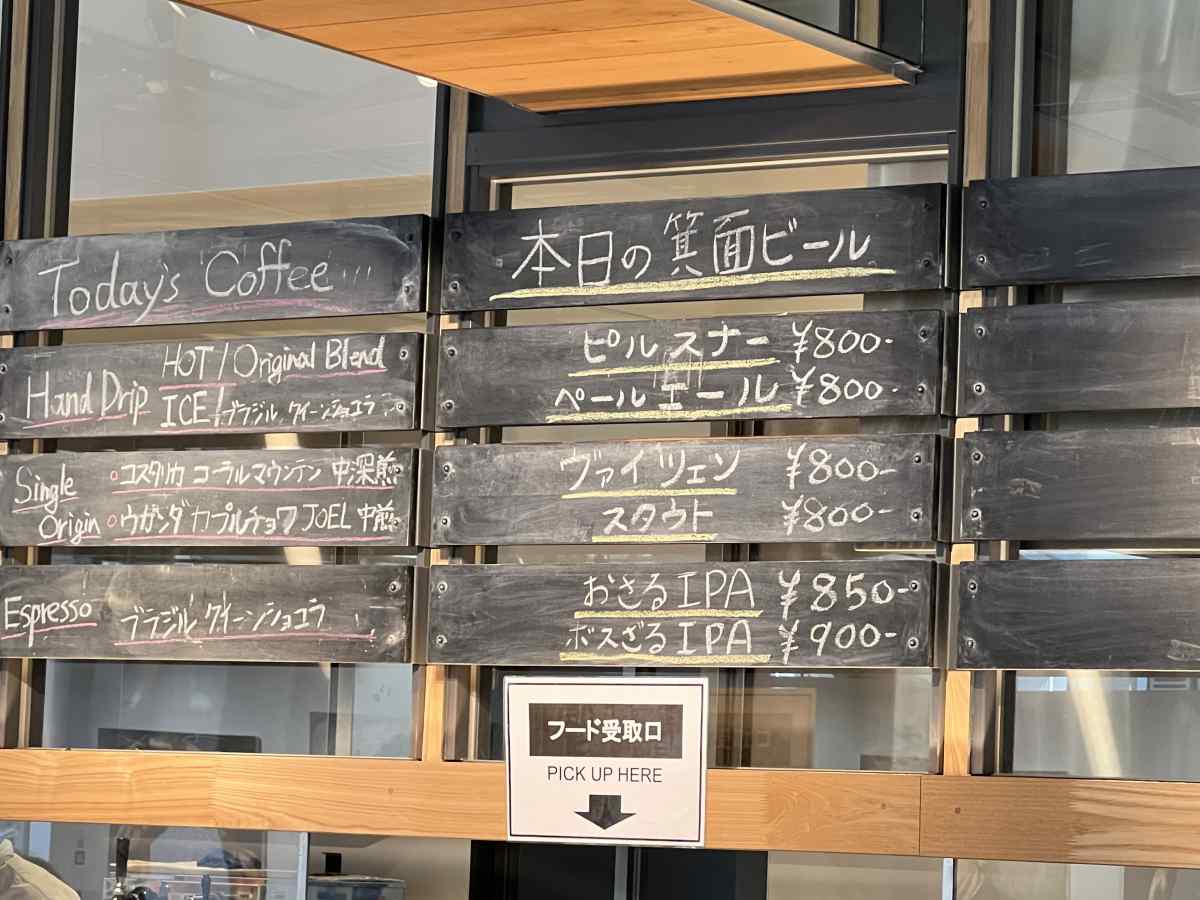 Today's Coffee...
Hand Drip
HOT / Original Blend
ICE / ブラジル クイーンショコラ
Single Origin
コスタリカ コーラルマウンテン 中深煎
ウガンダ カプルチョワ JOEL 中煎
Espresso
ブラジル クイーンショコラ
本日の箕面ビール
ピルスナー ¥800-
ペールエール ¥800-
ヴァイツェン ¥800-
スタウト ¥800-
おさるIPA ¥850-
ボスざるIPA ¥900-
フード受取口
PICK UP HERE